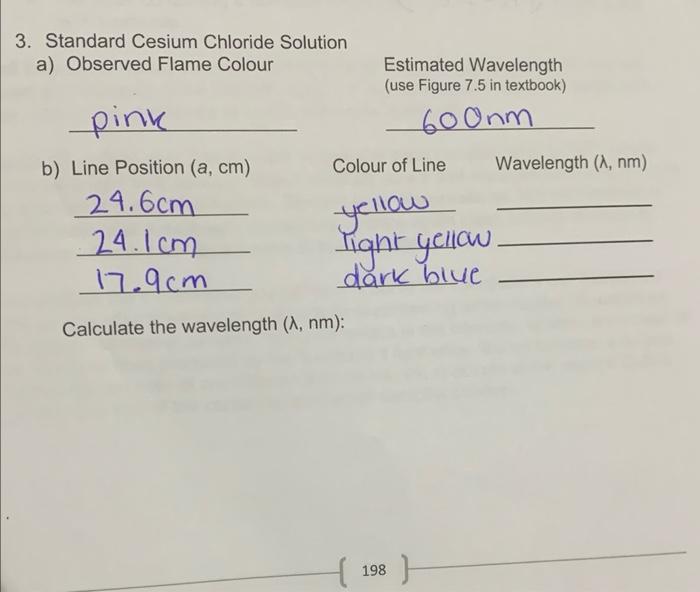 3. Standard Cesium Chloride Solution
a) Observed Flame Colour
Estimated Wavelength
(use Figure 7.5 in textbook)
pink
600nm
b) Line Position (a, cm) Colour of Line Wavelength (λ, nm)
24.6cm yellow
24.1cm light yellow
17.9cm dark blue
Calculate the wavelength (λ, nm):
198